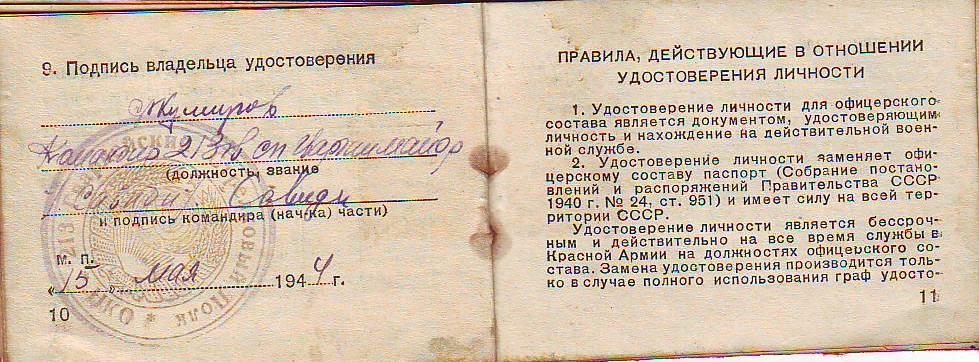 9. Подпись владельца удостоверения
Командир 213
(должность, звание
и подпись командира (нач-ка) части)
М. П.
„15" мая 1944 г.
10
ПРАВИЛА, ДЕЙСТВУЮЩИЕ В ОТНОШЕНИИ
УДОСТОВЕРЕНИЯ ЛИЧНОСТИ
1. Удостоверение личности для офицерского
состава является документом, удостоверяющим
личность и нахождение на действительной воен-
ной службе.
2. Удостоверение личности заменяет офи-
церскому составу паспорт (Собрание постано-
влений и распоряжений Правительства СССР
1940 г. № 24, ст. 951) и имеет силу на всей тер-
ритории СССР.
Удостоверение личности является бессроч-
ным и действительно на все время службы в
Красной Армии на должностях офицерского со-
става. Замена удостоверения производится толь-
ко в случае полного использования граф удосто-
11